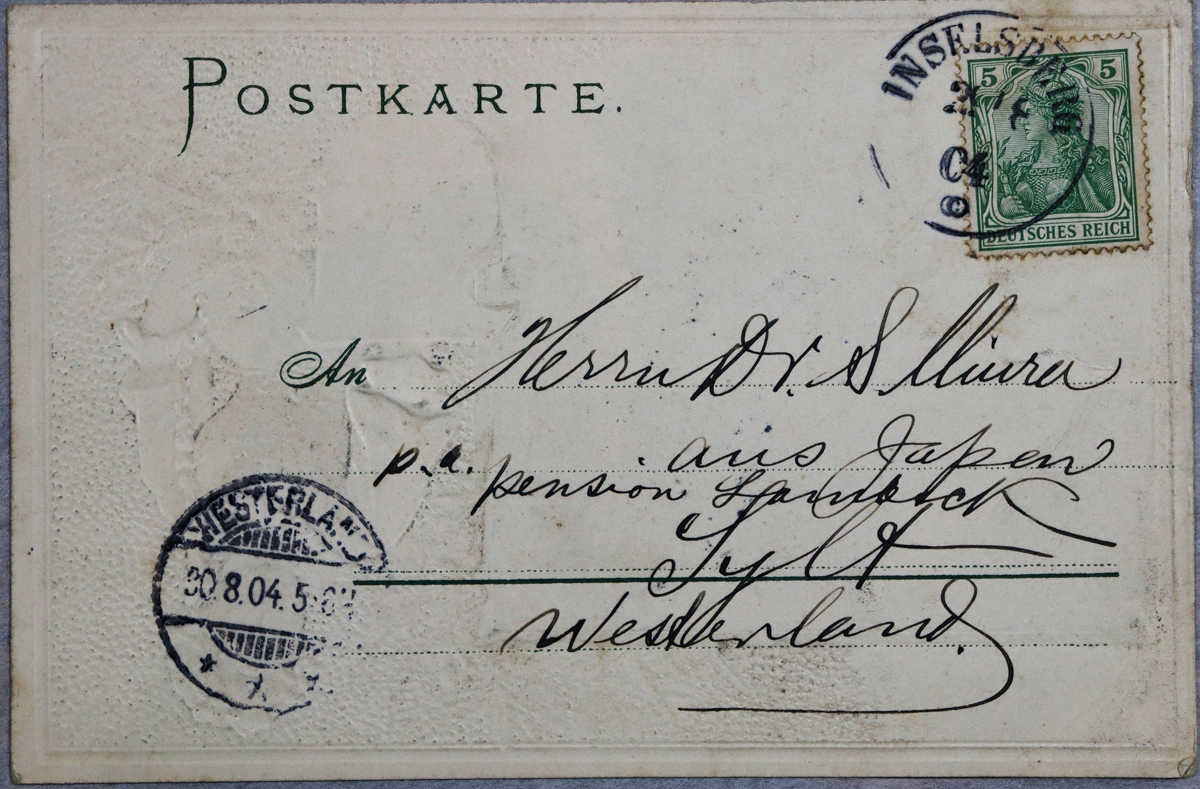 POSTKARTE.
INSELSBERG
04
5 5
DEUTSCHES REICH
An Herrn Dr. S Miura
p.a. aus Japan
pension
Sylt
Westerland.
WESTERLAND
30.8.04.5